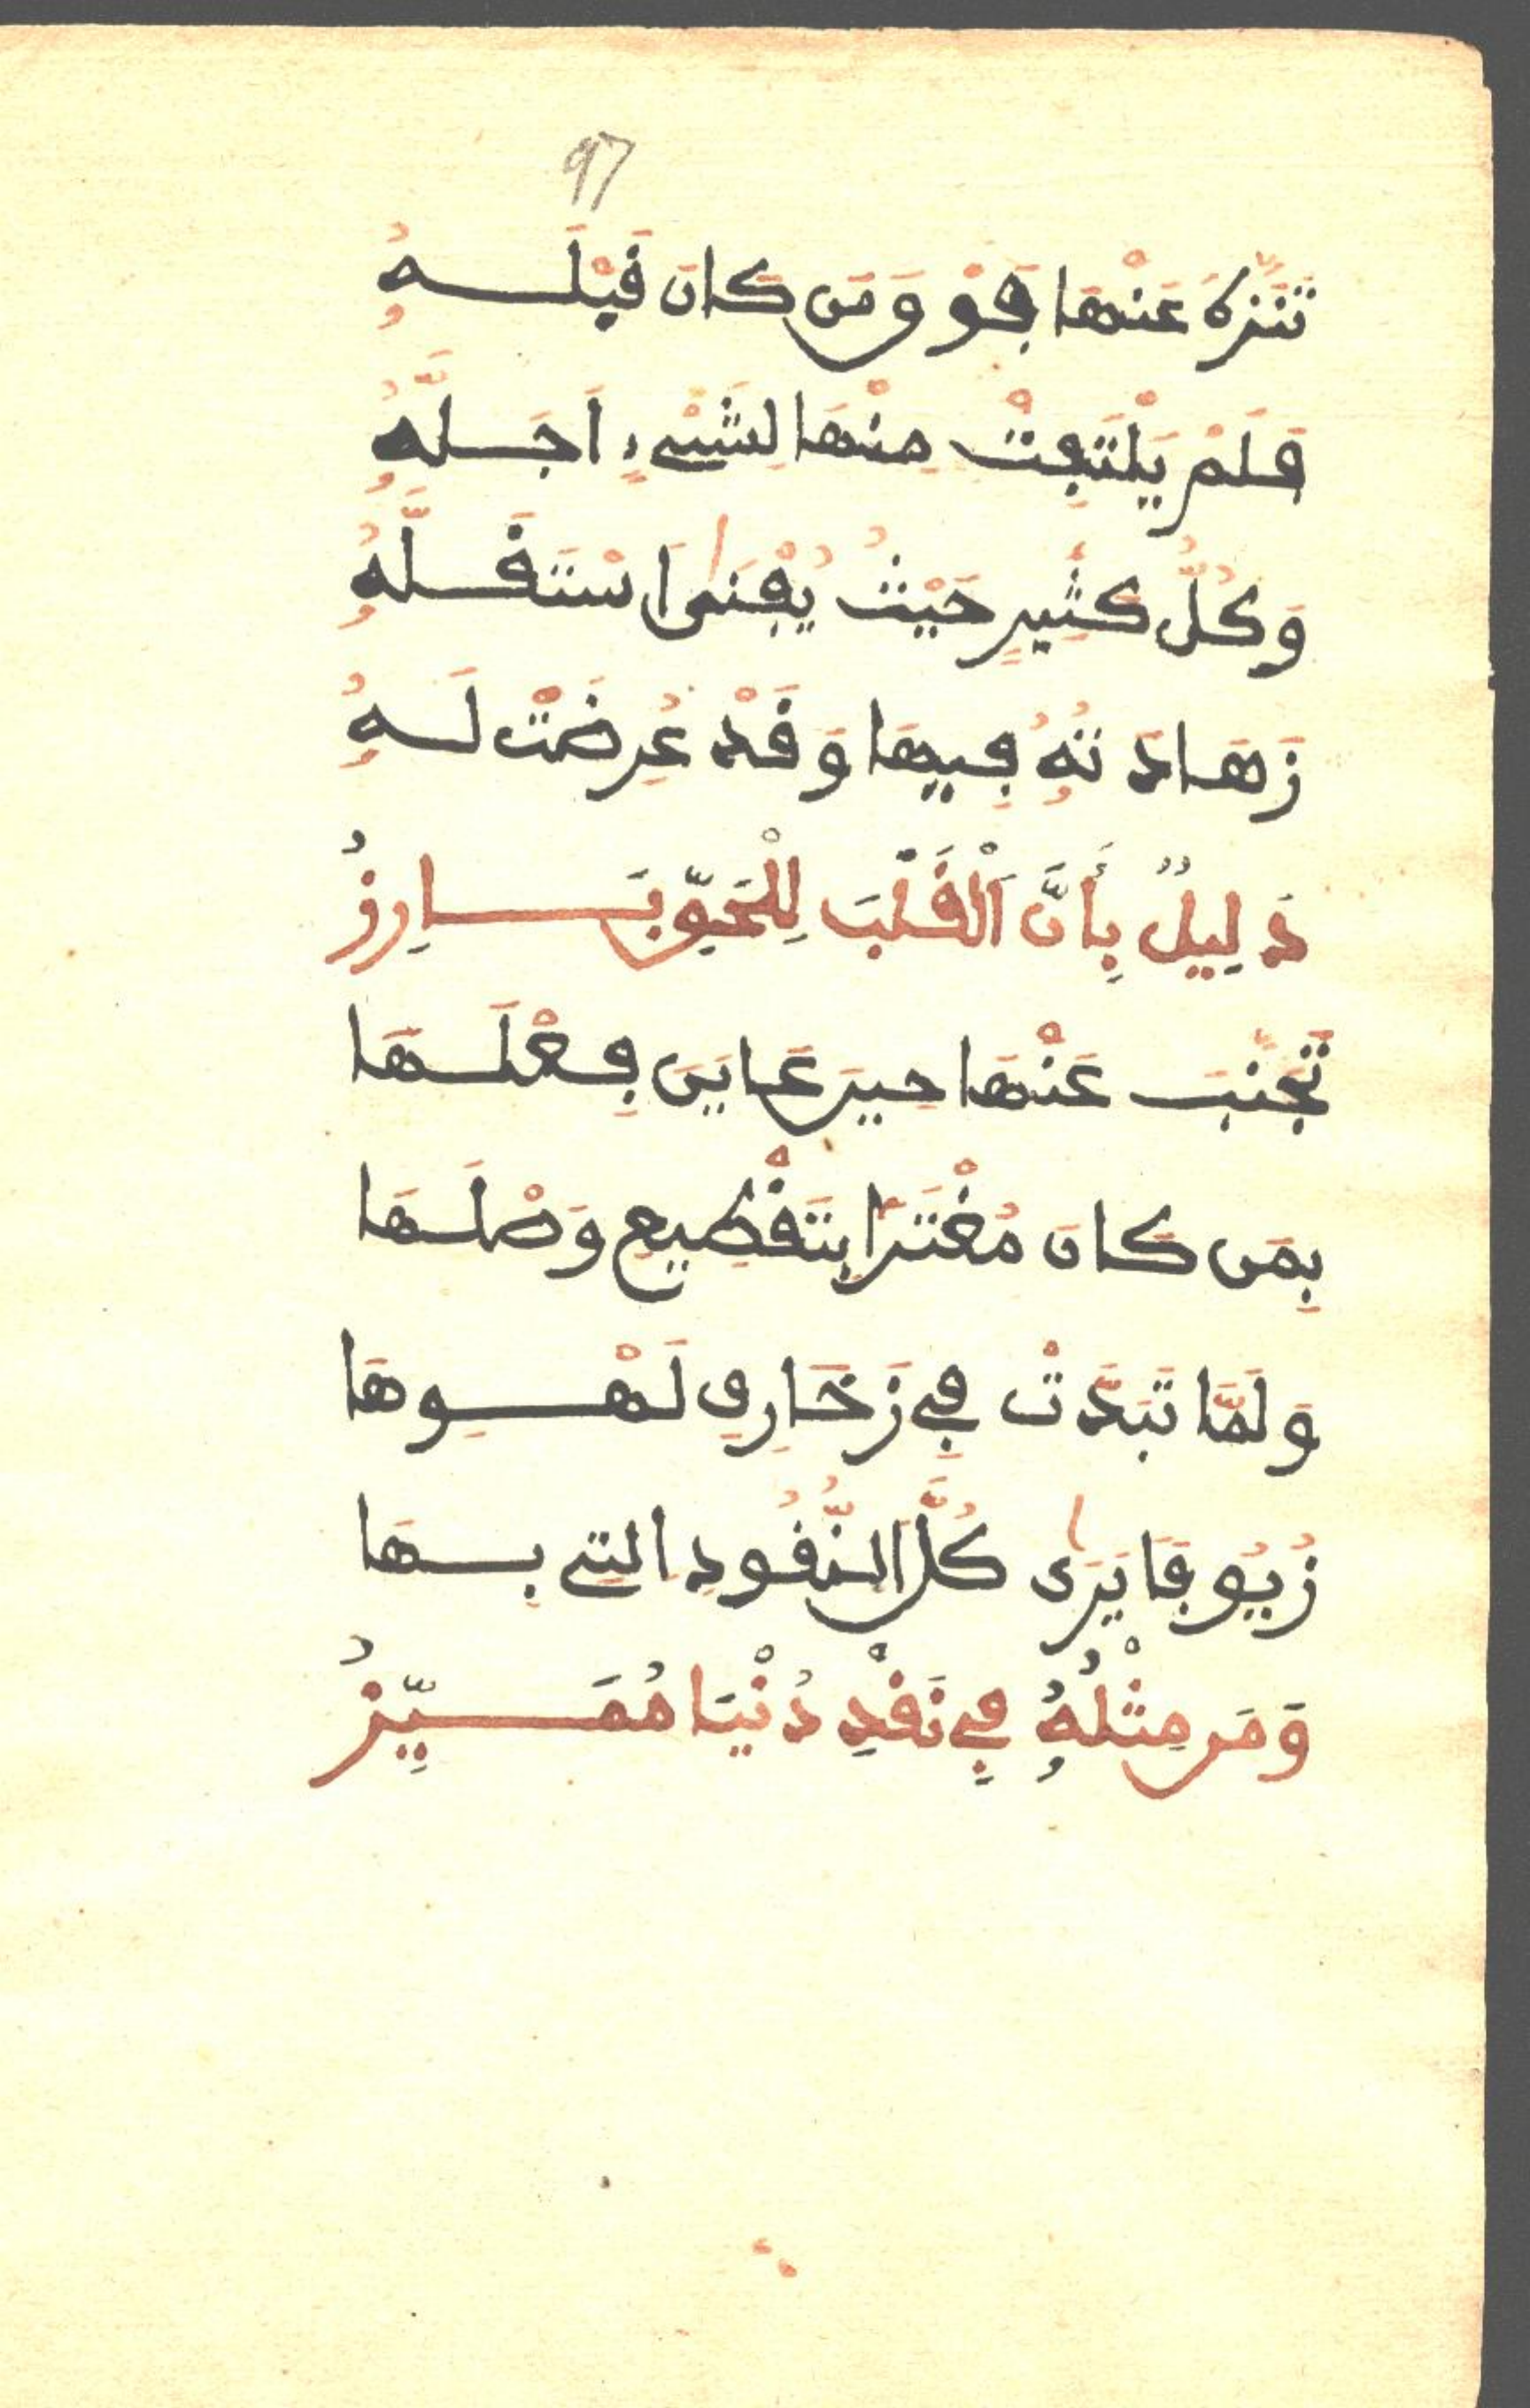 97
تَنَزَّهَ عَنْهَا فَهْوَ وَمَن كَانَ قَبْلَهُ
فَلَمْ يَلْتَفِتْ مِنْهَا لِشَيْءٍ اَجَلَّهُ
وَكُلُّ كَثِيرٍ حَيْثُ يُفْنَى اَسْتَقَلَّهُ
زَهَادَتُهُ فِيهَا وَقَدْ عُرِضَتْ لَهُ
دَلِيلٌ بِأَنَّ اَلْقَلْبَ لِلْحَقِّ بَارِزُ
تَجَنَّبَ عَنْهَا حِينَ عَايَنَ فِعْلَهَا
بِمَن كَانَ مُغْتَرًّا بِتَقْطِيعِ وَصْلِهَا
وَلَمَّا تَبَدَّتْ فِي زَخَارِفِ لَهْوِهَا
زُيُوفًا يَرَى كُلَّ النُّقُودِ التِي بِهَا
وَمَن مِثْلُهُ فِي نَقْدِ دُنْيَا مُمَيِّزُ